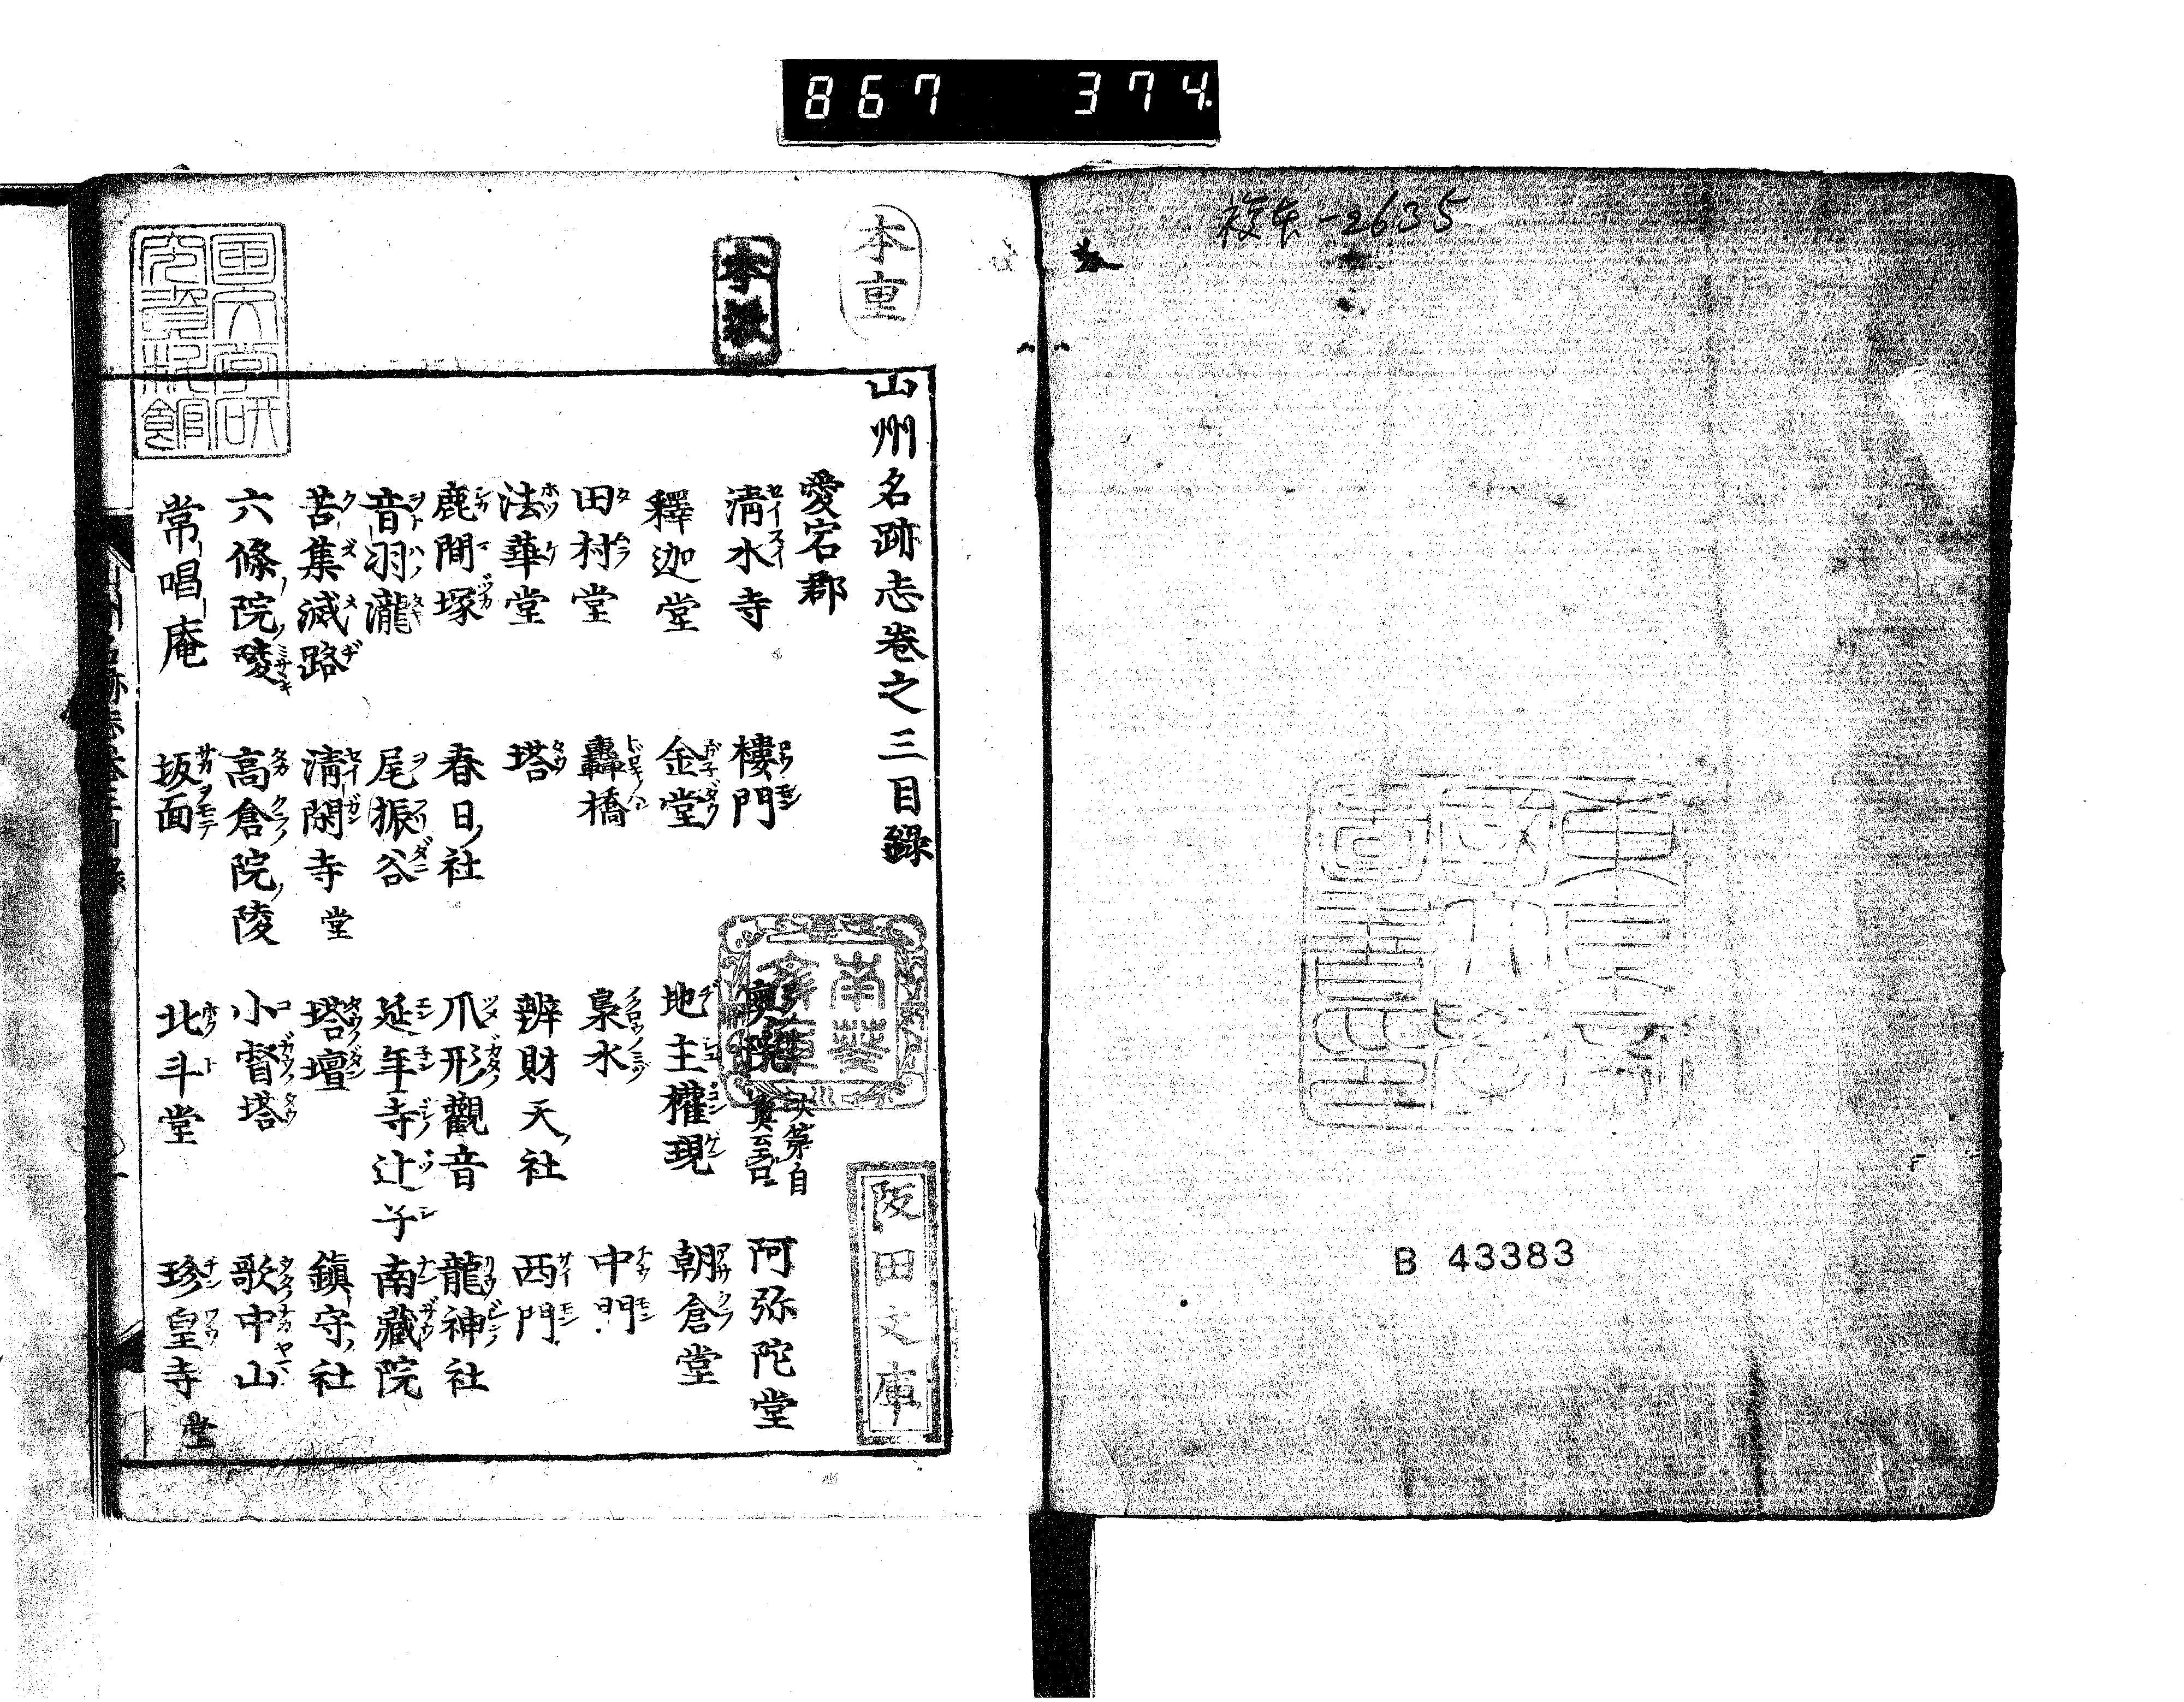 867 374
校本-2635
B 43383
本重
山州名跡志巻之三目録
愛宕郡
清水寺 樓門 奥院 次第自奥至口 阿弥陀堂
釋迦堂 金堂 地主權現 朝倉堂
田村堂 轟橋 梟水 中門
法華堂 塔 辨財天社 西門
鹿間塚 春日社 爪形觀音 龍神社
音羽瀧 尾振谷 延年寺辻子 南藏院
苦集滅路 清閑寺 堂 塔壇 鎮守社
六條院陵 高倉院陵 小督塔 歌中山
常唱庵 坂面 北斗堂 珍皇寺 堂
南葵文庫
阪田文庫